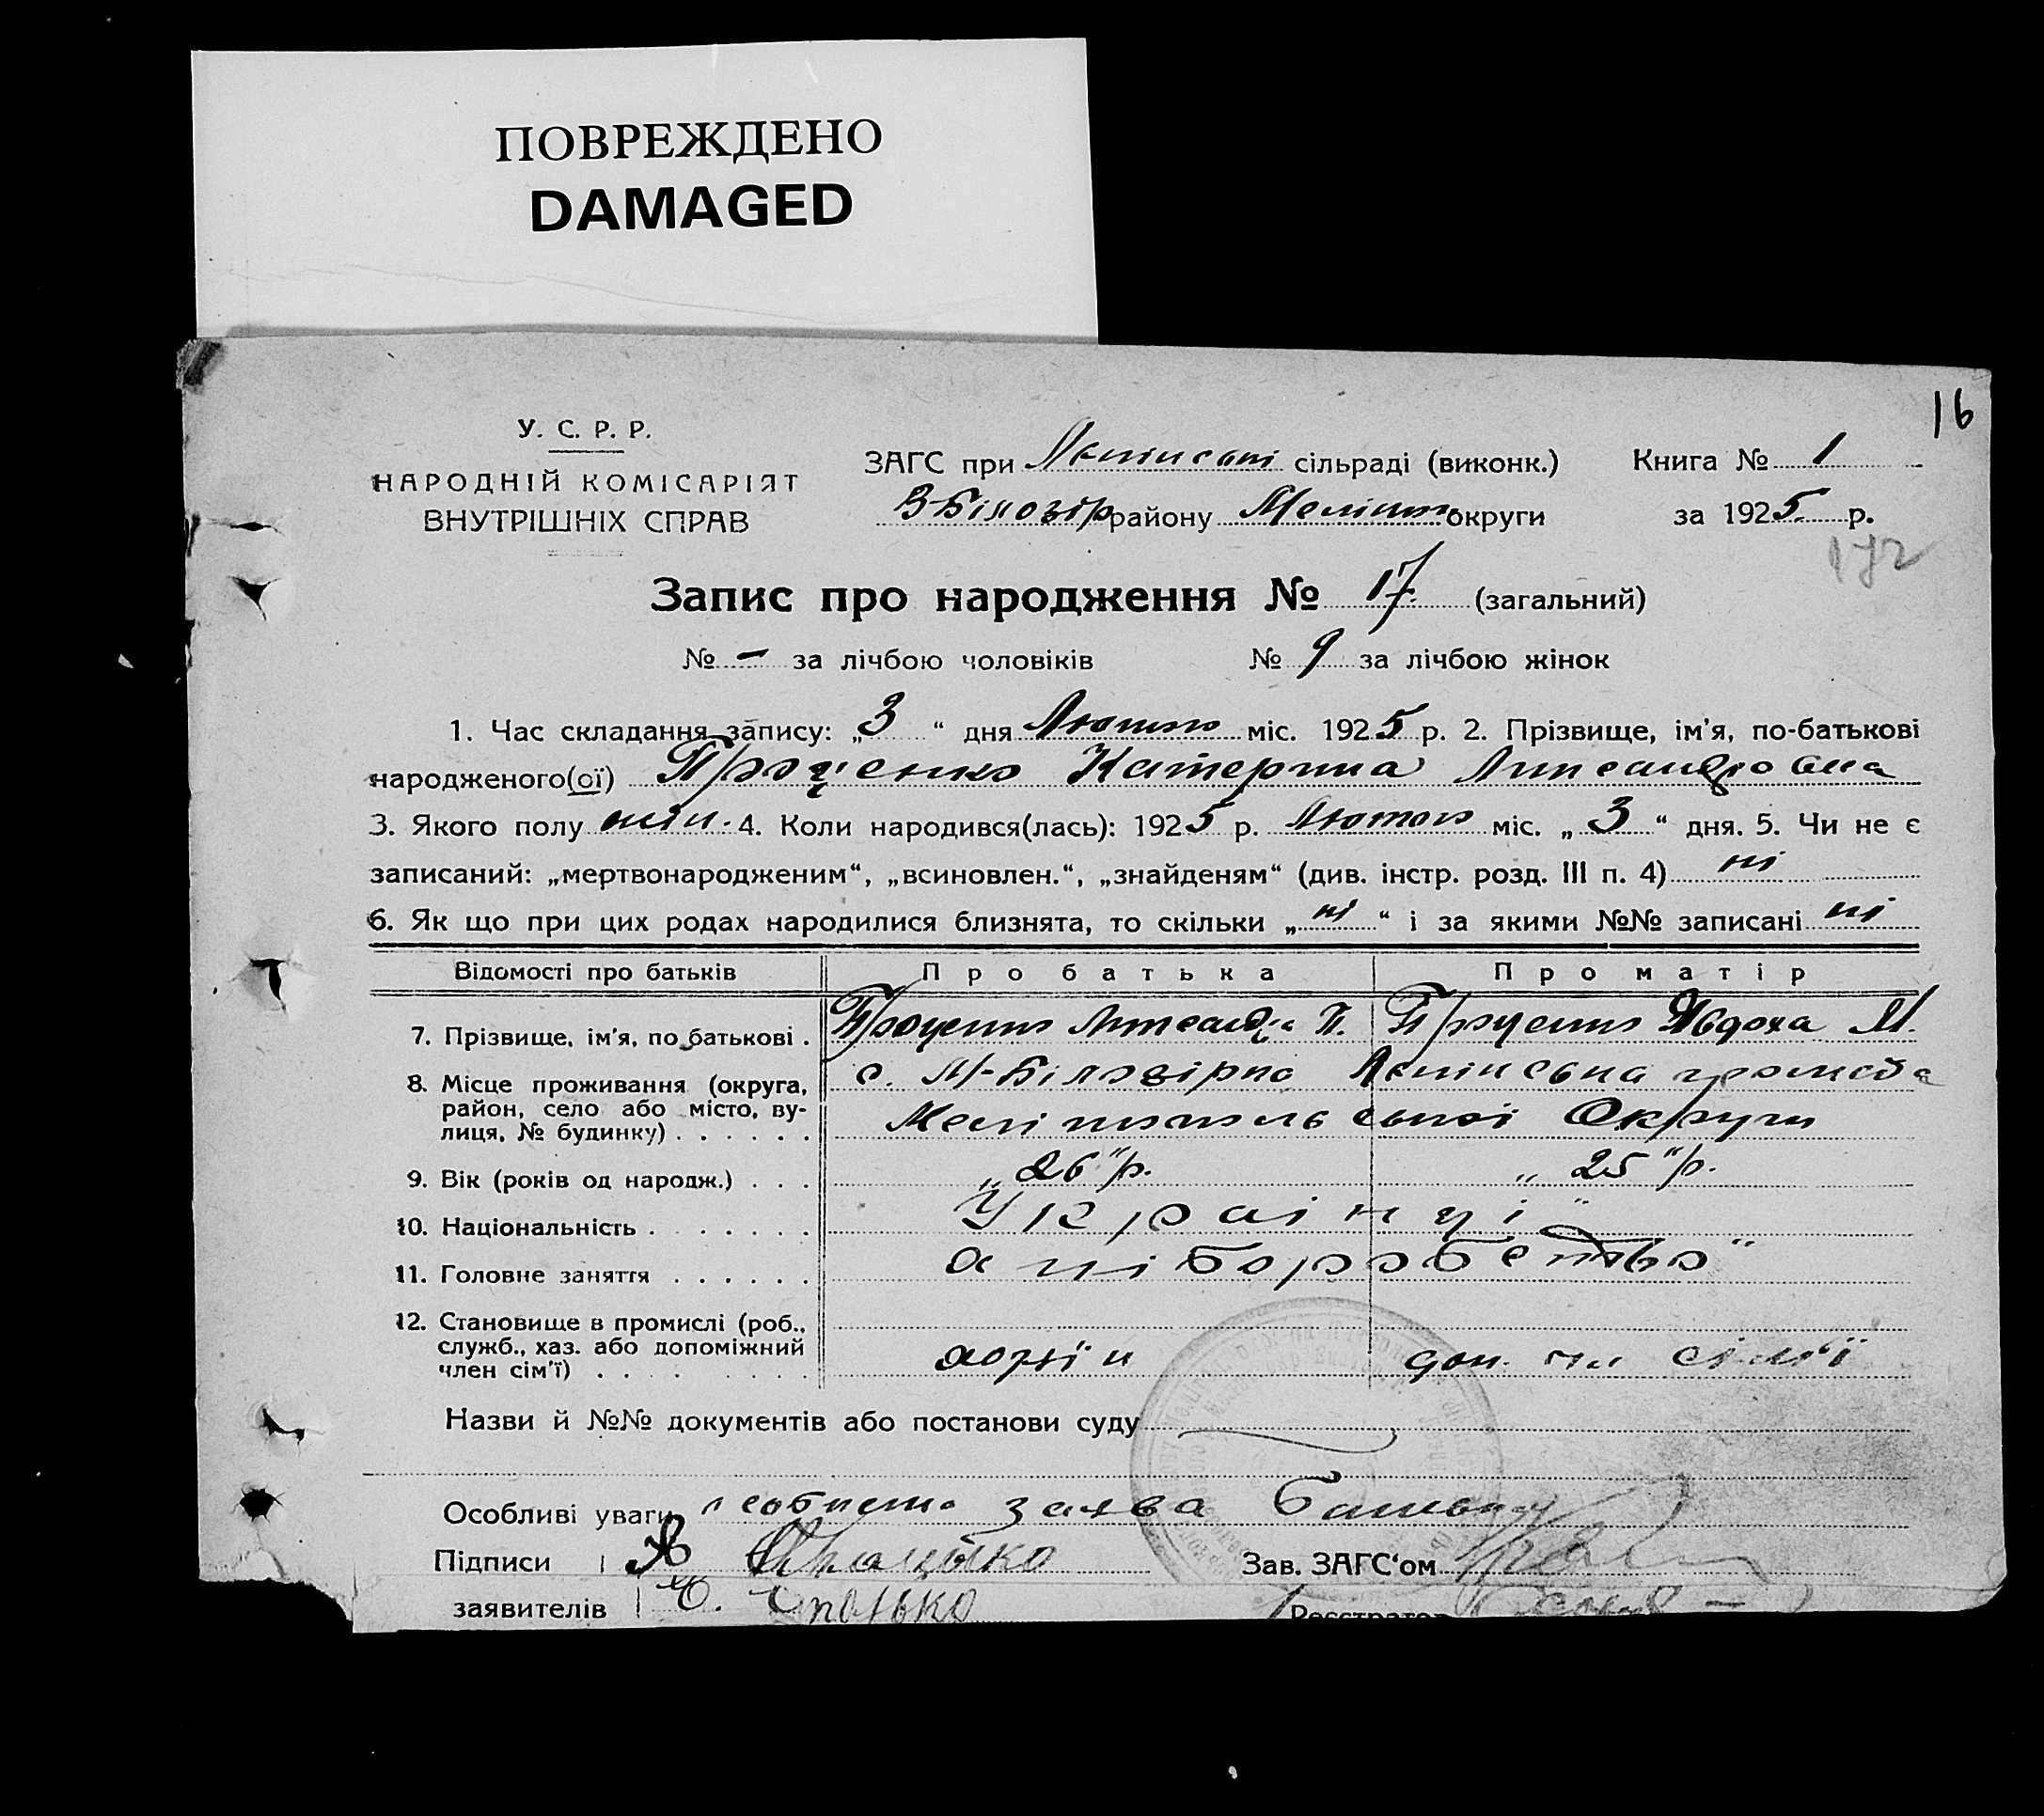 ПОВРЕЖДЕНО
DAMAGED
16
У. С. Р. Р.
НАРОДНІЙ КОМІСАРІЯТ
ВНУТРІШНІХ СПРАВ
ЗАГС при сільраді (виконк.)
В-Білозір району Меліт. округи
Книга № 1
за 1925 р.
172
Запис про народження № 17. (загальний)
№ – за лічбою чоловіків № 9 за лічбою жінок
1. Час складання запису: „3“ дня Лютого міс. 1925 р. 2. Прізвище, ім'я, по-батькові
народженого(ої) Проценко Катерина Лександровна
3. Якого полу жін. 4. Коли народився(лась): 1925 р. Лютого міс. „3“ дня. 5. Чи не є
записаний: „мертвонародженим“, „всиновлен.“, „знайденям“ (див. інстр. розд. III п. 4) ні
6. Як що при цих родах народилися близнята, то скільки „ні“ і за якими №№ записані ні
Відомості про батьків Про батька Про матір
7. Прізвище, ім'я, по батькові . Проценко П. Проценко Явдоха М.
8. Місце проживання (округа, район, село або місто, вулиця, № будинку) . . . . . . с. М-Білозірка громада
Мелітопольської Округи
9. Вік (років од народж.) . . . „26“ р. „25“ р.
10. Національність . . . . . . . Українці
11. Головне заняття . . . . . . „хліборобство“
12. Становище в промислі (роб., служб., хаз. або допоміжний член сім'ї) . . . . . . . . хозяїн доп. чл сімї
Назви й №№ документів або постанови суду
Особливі уваги особиста заява батька
Підписи Зав. ЗАГС'ом
заявителів Реєстратор